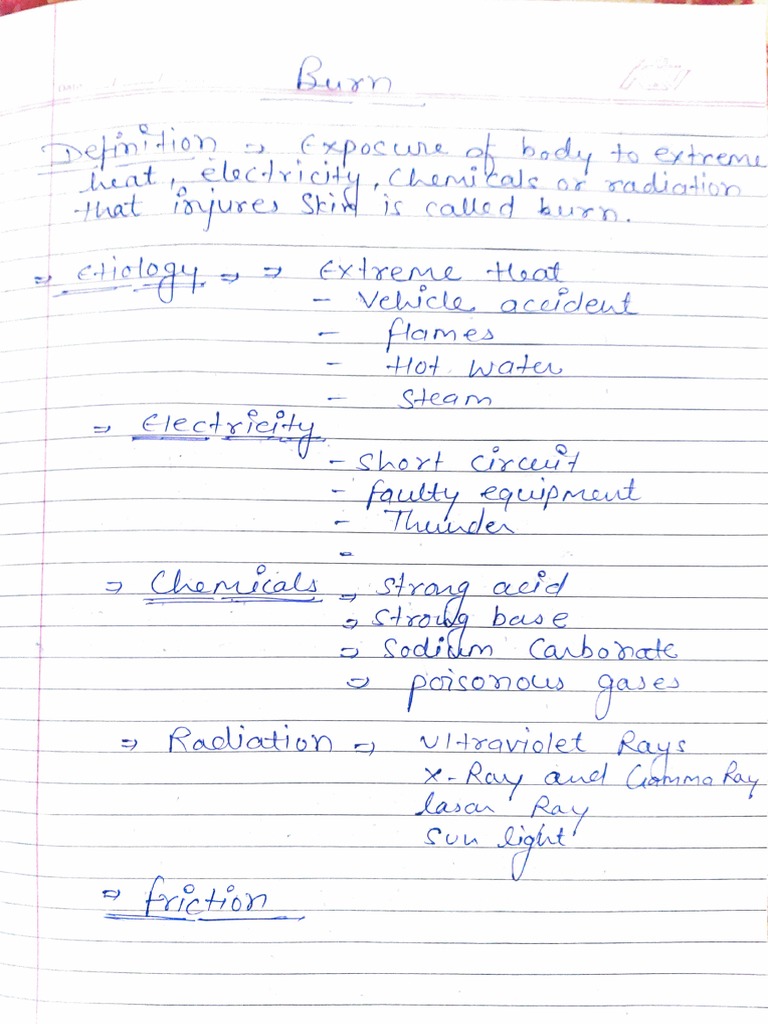 Burn
Definition ⇒ Exposure of body to extreme
heat, electricity, chemicals or radiation
that injures skin is called burn.
⇒ Etiology ⇒ ⇒ Extreme Heat
- Vehicle accident
- flames
- Hot water
- Steam
⇒ Electricity
- Short circuit
- faulty equipment
- Thunder
-
⇒ Chemicals ⇒ Strong acid
⇒ Strong base
⇒ Sodium Carbonate
⇒ poisonous gases
⇒ Radiation ⇒ Ultraviolet Rays
X-Ray and Gamma Ray
laser Ray
Sun light
⇒ friction